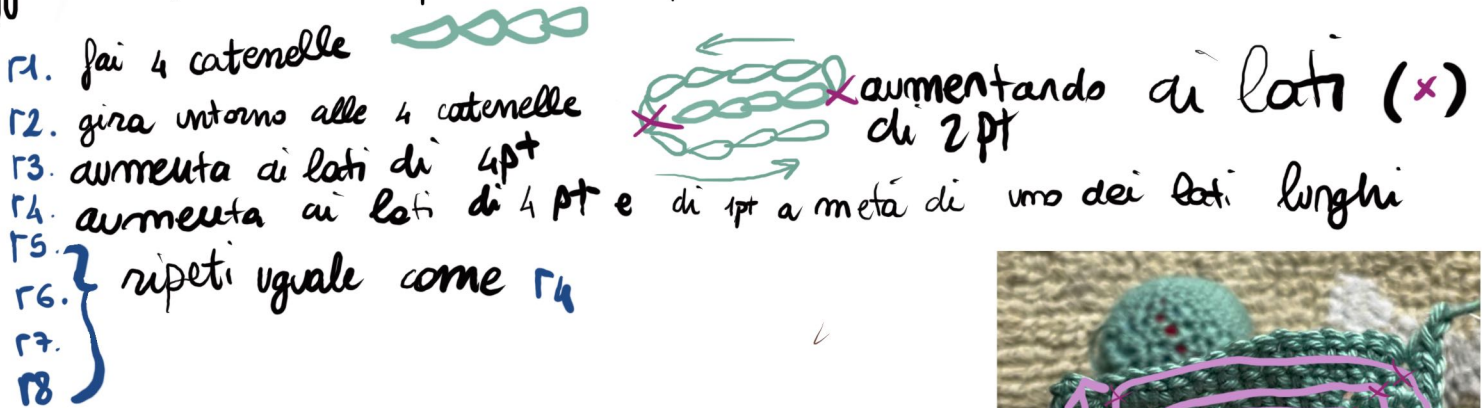 r1. fai 4 catenelle
r2. gira intorno alle 4 catenelle aumentando ai lati (x)
di 2 pt
r3. aumenta ai lati di 4pt
r4. aumenta ai lati di 4 pt e di 1pt a metá di uno dei lati lunghi
r5.
r6. ripeti uguale come r4
r7.
r8